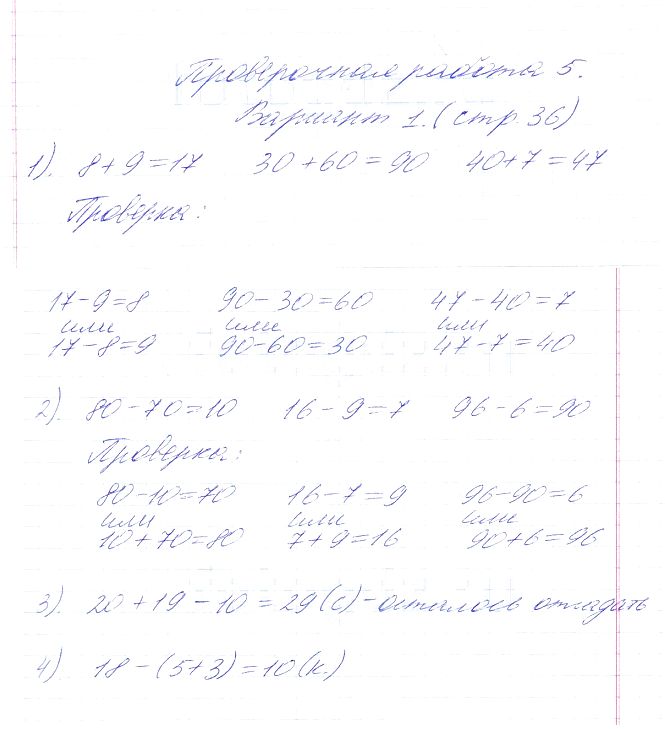 Проверочная работа 5.
Вариант 1. (стр 36)
1). 8+9=17 30+60=90 40+7=47
Проверка:
17-9=8 90-30=60 47-40=7
или или или
17-8=9 90-60=30 47-7=40
2). 80-70=10 16-9=7 96-6=90
Проверка:
80-10=70 16-7=9 96-90=6
или или или
10+70=80 7+9=16 90+6=96
3). 20+19-10=29(с)-осталось отгадать
4) 18-(5+3)=10(к.)